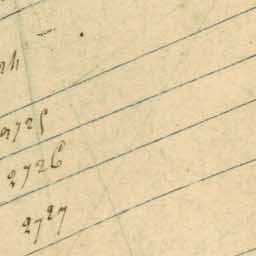 2725
2726
2727